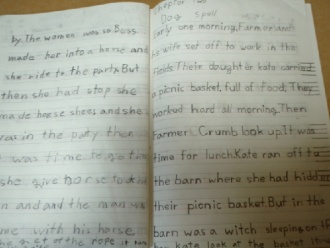 by. The women was so
made her into a horse and
she ride to the party. But
then she had stop she
made horse shoes and she
was in the party then
it was time to go
she give horse to
and and the man was
me with his horse.
of the rope it
Chapter two
Dog spell
Early one morning, Farmer and
his wife set off to work in the
Fields. Their daughter kate carried
a picnic basket, full of food. They
worked hard all morning. Then
Farmer. Crumb look up. It was
time for lunch. Kate ran off to
the barn where she had hidd
their picnic basket. But in the
barn was a witch sleeping on
kate look at the basket